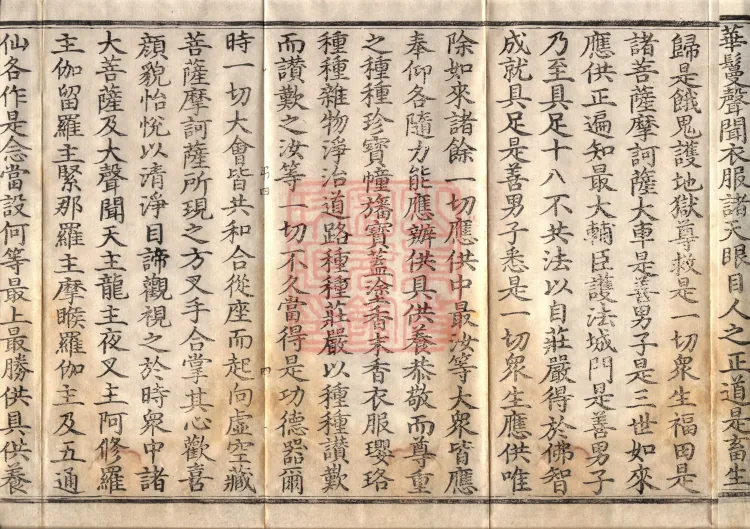 華鬘聲聞衣服諸天眼目人之正道是畜生
歸是餓鬼護地獄尊救是一切衆生福田是
諸菩薩摩訶薩大車是善男子是三世如來
應供正遍知最大輔臣護法城門是善男子
乃至具足十八不共法以自莊嚴得於佛智
成就具足是善男子悉是一切衆生應供唯
除如來諸餘一切應供中最汝等大衆皆應
奉仰各隨力能應辦供具供養恭敬而尊重
之種種珍寶幢旛寶蓋塗香末香衣服瓔珞
種種雜物淨治道路種種莊嚴以種種讃歎
而讃歎之汝等一切不久當得是功德器爾
時一切大會皆共和合從座而起向虛空藏
菩薩摩訶薩所現之方叉手合掌其心歡喜
顔貌怡悅以清淨目諦觀視之於時衆中諸
大菩薩及大聲聞天主龍主夜叉主阿修羅
主伽留羅主緊那羅主摩睺羅伽主及五通
仙各作是念當設何等最上最勝供具供養